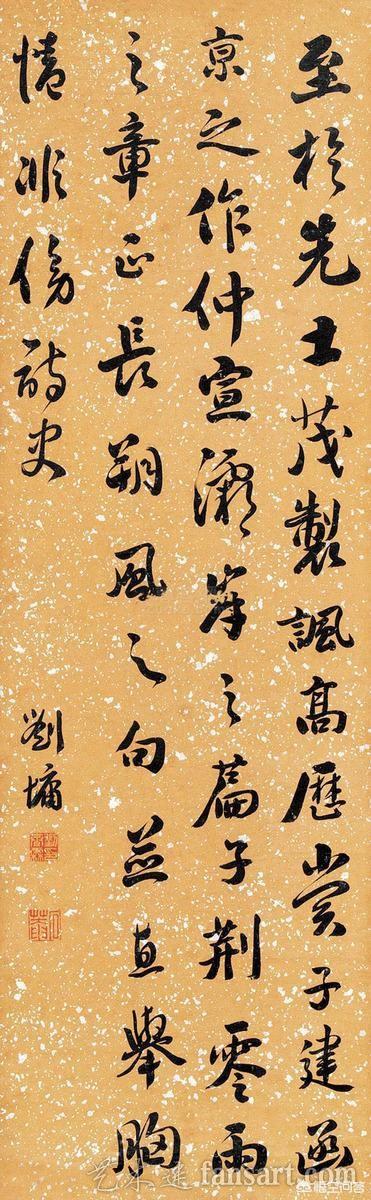 至於先士茂製諷高歷賞子建函
京之作仲宣灞岸之篇子荊零雨
之章正長朔風之句並直舉胸
情非傍詩史
劉墉
艺术迷 fansart.com
悟空问答